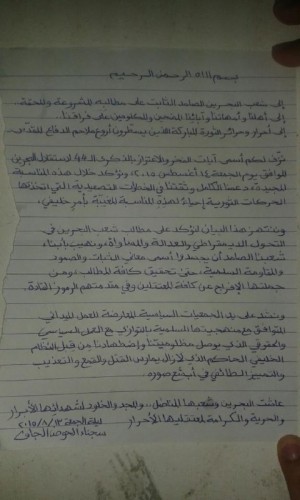 بسم الله الرحمن الرحيم
إلى شعب البحرين الصامد الثابت على مطالبه المشروعة والمحقة..
إلى أهلنا وأمهاتنا وآبائنا المضحين والمظلومين على فراقنا..
إلى أحرار وحرائر الثورة المباركة الذين يسطرون أروع ملاحم الدفاع المقدس..
نزف لكم أسمى آيات الفخر والاعتزاز بالذكرى الـ 44 لاستقلال البحرين
الموافق يوم الجمعة 14 أغسطس 2015م، ونؤكد خلال هذه المناسبة
المجيدة دعمنا الكامل وثقتنا في الفعاليات التصعيدية التي انتخبتها
الحركات الثورية إحياءً لهذه المناسبة المغيبة بأمر خليفي.
وننتهز هذا البيان لنؤكد على مطالب شعب البحرين في
التحول الديمقراطي والعدالة والمساواة، ونهيب بأبناء
شعبنا الصامد أن يجسدوا أسمى معاني الثبات والصمود
والمقاومة السلمية، حتى تحقيق كافة المطالب ومن
جملتها الإفراج عن كافة المعتقلين وفي مقدمتهم الرموز القادة.
ونشد على يد الجمعيات السياسية المعارضة العمل الميداني
المتوافق مع منهجيتها السلمية بالتوازي مع العمل السياسي
والحقوقي الذي يوصل مظلوميتنا واضطهادنا من قبل النظام
الخليفي الحاكم الذي لا زال يمارس القتل والقمع والتعذيب
والتمييز الطائفي في أبشع صوره.
عاشت البحرين وشعبها المناضل.. والمجد والخلود لشهدائها الأبرار
والحرية والكرامة لمعتقليها الأحرار
ليلة الجمعة 13/8/2015
سجناء الحوض الجاف